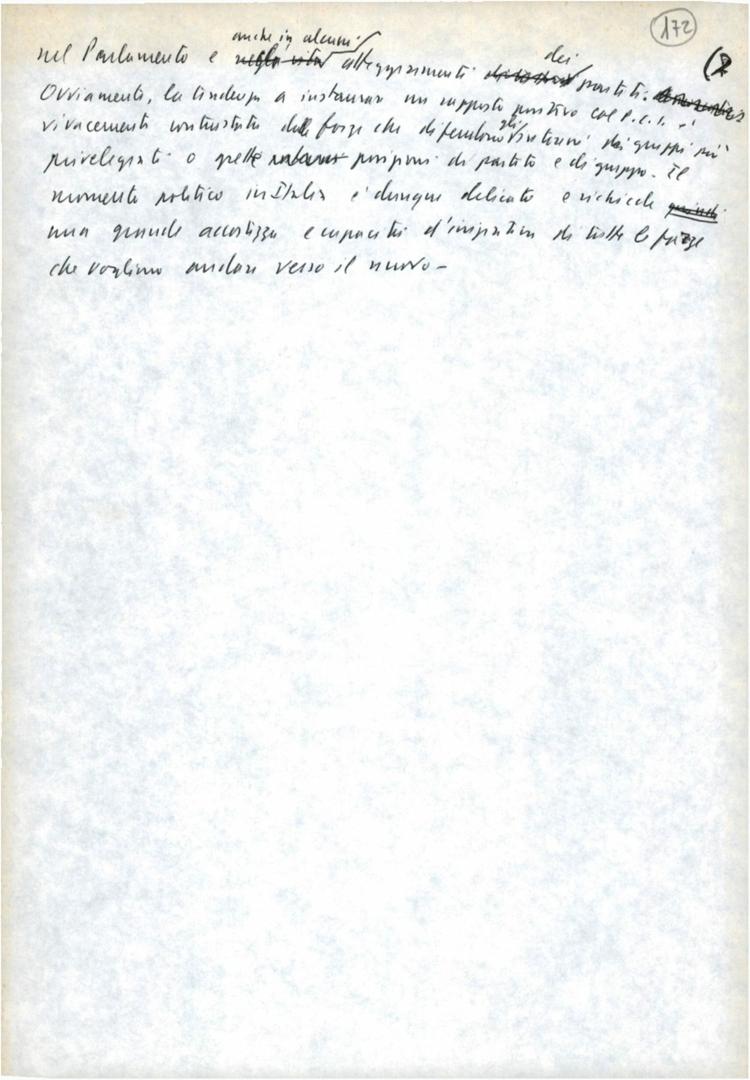 172
(2
anche in alcuni dei
nel Parlamento e atteggiamenti partiti.
Ovviamente, la tendenza a instaurare un rapporto positivo col P.C.I. è
vivacemente contrastata dalle forze che difendono gli dei gruppi più
privilegiati o grette posizioni di partito e di gruppo. Il
momento politico in Italia è dunque delicato e richiede quindi
una grande accortezza e capacità d'iniziativa di tutte le forze
che vogliono andare verso il nuovo -